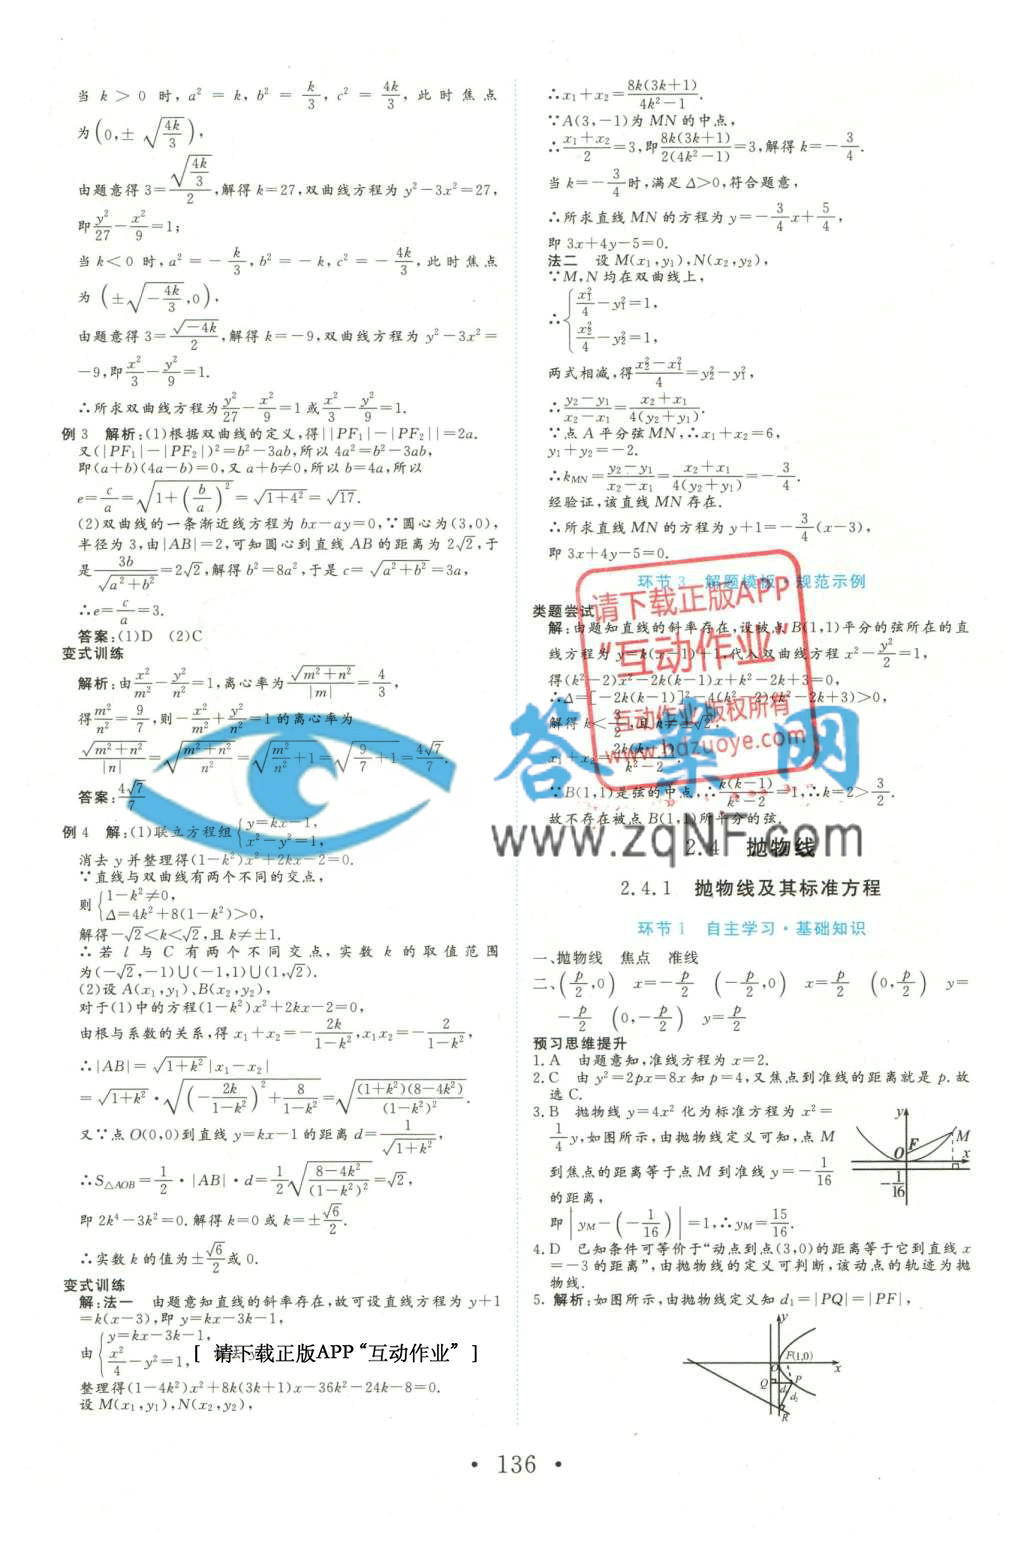 当 k > 0 时, a² = k, b² = k/3, c² = 4k/3, 此时焦点
为(0, ±√(4k/3)),
由题意得 3=√(4k/3)/2, 解得 k=27, 双曲线方程为 y²-3x²=27,
即 y²/27-x²/9=1;
当 k<0 时, a²=-k/3, b²=-k, c²=-4k/3, 此时焦点
为(±√(-4k/3),0),
由题意得 3=√(-4k)/2, 解得 k=-9, 双曲线方程为 y²-3x²=
-9, 即 x²/3-y²/9=1.
∴所求双曲线方程为 y²/27-x²/9=1 或 x²/3-y²/9=1.
例 3 解析:(1)根据双曲线的定义,得||PF₁|-|PF₂||=2a.
又(|PF₁|-|PF₂|)²=b²-3ab,所以 4a²=b²-3ab,
即(a+b)(4a-b)=0,又 a+b≠0,所以 b=4a,所以
e=c/a=√(1+(b/a)²)=√(1+4²)=√17.
(2)双曲线的一条渐近线方程为 bx-ay=0,∵圆心为(3,0),
半径为 3,由|AB|=2,可知圆心到直线 AB 的距离为 2√2,于
是 3b/√(a²+b²)=2√2,解得 b²=8a²,于是 c=√(a²+b²)=3a,
∴e=c/a=3.
答案:(1)D (2)C
变式训练
解析:由 x²/m²-y²/n²=1,离心率为 √(m²+n²)/|m|=4/3,
得 m²/n²=9/7,则-x²/m²+y²/n²=1 的离心率为
√(m²+n²)/|n|=√((m²+n²)/n²)=√(m²/n²+1)=√(9/7+1)=4√7/7.
答案:4√7/7
例 4 解:(1)联立方程组{y=kx-1,
x²-y²=1,
消去 y 并整理得(1-k²)x²+2kx-2=0.
∵直线与双曲线有两个不同的交点,
则{1-k²≠0,
Δ=4k²+8(1-k²)>0,
解得-√2<k<√2,且 k≠±1.
∴若 l 与 C 有两个不同交点,实数 k 的取值范围
为(-√2,-1)∪(-1,1)∪(1,√2).
(2)设 A(x₁,y₁)、B(x₂,y₂),
对于(1)中的方程(1-k²)x²+2kx-2=0,
由根与系数的关系,得 x₁+x₂=-2k/(1-k²),x₁x₂=-2/(1-k²),
∴|AB|=√(1+k²)|x₁-x₂|
=√(1+k²)·√((-2k/(1-k²))²+8/(1-k²))=√((1+k²)(8-4k²)/(1-k²)²).
又∵点 O(0,0)到直线 y=kx-1 的距离 d=1/√(1+k²),
∴S△AOB=1/2·|AB|·d=1/2√((8-4k²)/(1-k²)²)=√2,
即 2k⁴-3k²=0.解得 k=0 或 k=±√6/2.
∴实数 k 的值为±√6/2或 0.
变式训练
解:法一 由题意知直线的斜率存在,故可设直线方程为 y+1
=k(x-3),即 y=kx-3k-1,
由{y=kx-3k-1,
x²/4-y²=1,
[ 请下载正版APP“互动作业” ]
整理得(1-4k²)x²+8k(3k+1)x-36k²-24k-8=0.
设 M(x₁,y₁),N(x₂,y₂),
∴x₁+x₂=8k(3k+1)/(4k²-1).
∵A(3,-1)为 MN 的中点,
∴(x₁+x₂)/2=3,即 8k(3k+1)/(2(4k²-1))=3,解得 k=-3/4.
当 k=-3/4时,满足 Δ>0,符合题意,
∴所求直线 MN 的方程为 y=-3/4x+5/4,
即 3x+4y-5=0.
法二 设 M(x₁,y₁),N(x₂,y₂),
∵M,N 均在双曲线上,
∴{x₁²/4-y₁²=1,
x₂²/4-y₂²=1,
两式相减,得(x₂²-x₁²)/4=y₂²-y₁²,
∴(y₂-y₁)/(x₂-x₁)=(x₂+x₁)/(4(y₂+y₁)).
∵点 A 平分弦 MN,∴x₁+x₂=6,
y₁+y₂=-2.
∴kMN=(y₂-y₁)/(x₂-x₁)=(x₂+x₁)/(4(y₂+y₁))=-3/4.
经验证,该直线 MN 存在.
∴所求直线 MN 的方程为 y+1=-3/4(x-3),
即 3x+4y-5=0.
环节 3 解题模板·规范示例
类题尝试
解:由题知直线的斜率存在,设被点 B(1,1)平分的弦所在的直
线方程为 y=k(x-1)+1,代入双曲线方程 x²-y²/2=1,
得(k²-2)x²-2k(k-1)x+k²-2k+3=0,
∴Δ=[-2k(k-1)]²-4(k²-2)(k²-2k+3)>0,
解得 k<3/2,且 k≠±√2.
x₁+x₂=2k(k-1)/(k²-2).
∵B(1,1)是弦的中点,∴k(k-1)/(k²-2)=1,∴k=2>3/2.
故不存在被点 B(1,1)所平分的弦.
请下载正版APP
“互动作业”
互动作业版权所有
www.hdzuoye.com
答案网
www.zqNF.com
2.4 抛物线
2.4.1 抛物线及其标准方程
环节 1 自主学习·基础知识
一、抛物线 焦点 准线
二、(p/2,0) x=-p/2 (-p/2,0) x=p/2 (0,p/2) y=
-p/2 (0,-p/2) y=p/2
预习思维提升
1. A 由题意知,准线方程为 x=2.
2. C 由 y²=2px=8x 知 p=4,又焦点到准线的距离就是 p.故
选 C.
3. B 抛物线 y=4x² 化为标准方程为 x²=
1/4y,如图所示,由抛物线定义可知,点 M
到焦点的距离等于点 M 到准线 y=-1/16
的距离,
即|yM-(-1/16)|=1,∴yM=15/16.
y
F
M
O
x
-1/16
4. D 已知条件可等价于“动点到点(3,0)的距离等于它到直线 x
=-3 的距离”,由抛物线的定义可判断,该动点的轨迹为抛
物线.
5. 解析:如图所示,由抛物线定义知 d₁=|PQ|=|PF|,
y
F(1,0)
O
x
Q
d₁
P
d₂
R
• 136 •